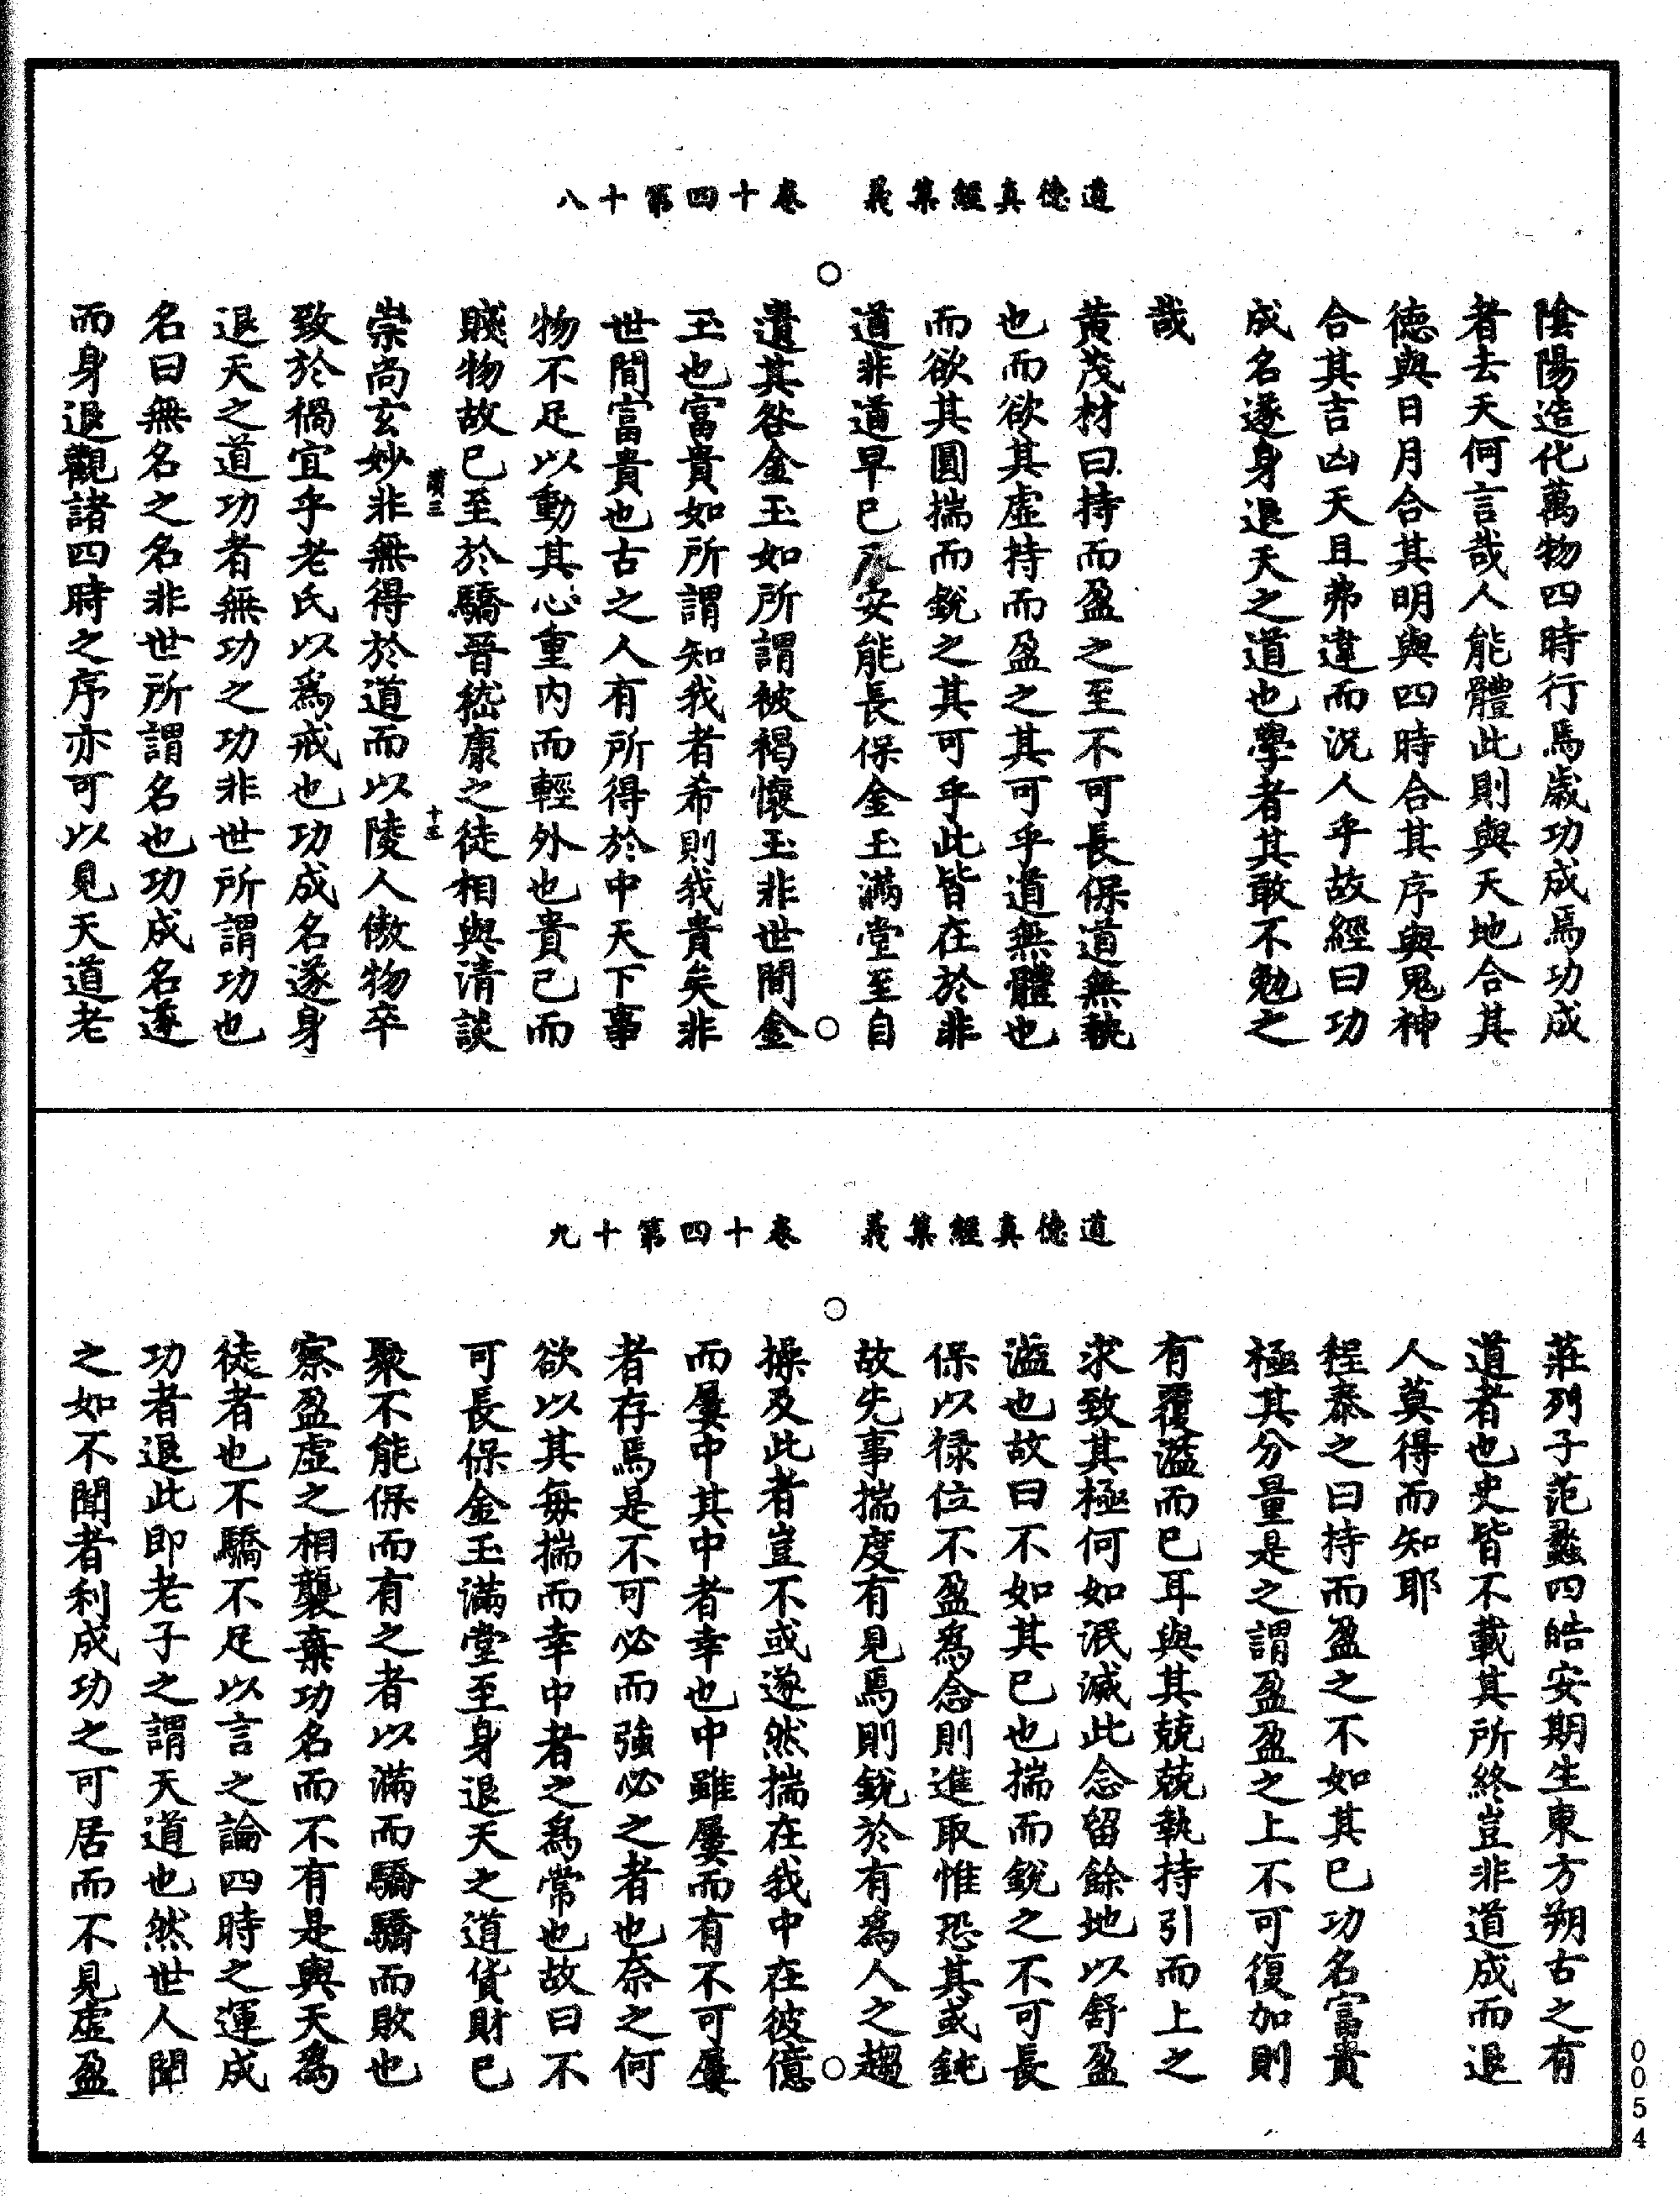 道德真經集義　卷十四第十八
陰陽造化萬物四時行焉歲功成焉功成
者去天何言哉人能體此則與天地合其
德與日月合其明與四時合其序與鬼神
合其吉凶天且弗違而況人乎故經曰功
成名遂身退天之道也學者其敢不勉之
哉
黃茂材曰持而盈之至不可長保道無執
也而欲其虛持而盈之其可乎道無體也
而欲其圓揣而銳之其可乎此皆在於非
道非道早已安能長保金玉滿堂至自
遺其咎金玉如所謂被褐懷玉非世間金
玉也富貴如所謂知我者希則我貴矣非
世間富貴也古之人有所得於中天下事
物不足以動其心重內而輕外也貴己而
賤物故已至於驕晉嵇康之徒相與清談
十三
崇尚玄妙非無得於道而以陵人傲物卒
致於禍宜乎老氏以為戒也功成名遂身
退天之道功者無功之功非世所謂功也
名曰無名之名非世所謂名也功成名遂
而身退觀諸四時之序亦可以見天道老
道德真經集義　卷十四第十九
莊列子范蠡四皓安期生東方朔古之有
道者也史皆不載其所終豈非道成而退
人莫得而知耶
程泰之曰持而盈之不如其已功名富貴
極其分量是之謂盈盈之上不可復加則
有覆溢而已耳與其兢兢執持引而上之
求致其極何如泯滅此念留餘地以舒盈
溢也故曰不如其已也揣而銳之不可長
保以祿位不盈為念則進取惟恐其或鈍
故先事揣度有見焉則銳於有為人之趨
操及此者豈不或遂然揣在我中在彼億
而屢中其中者幸也中雖屢而有不可屢
者存焉是不可必而強必之者也奈之何
欲以其每揣而幸中者之為常也故曰不
可長保金玉滿堂至身退天之道貨財已
聚不能保而有之者以滿而驕驕而敗也
察盈虛之相襲棄功名而不有是與天為
徒者也不驕不足以言之論四時之運成
功者退此即老子之謂天道也然世人聞
之如不聞者利成功之可居而不見虛盈
0054